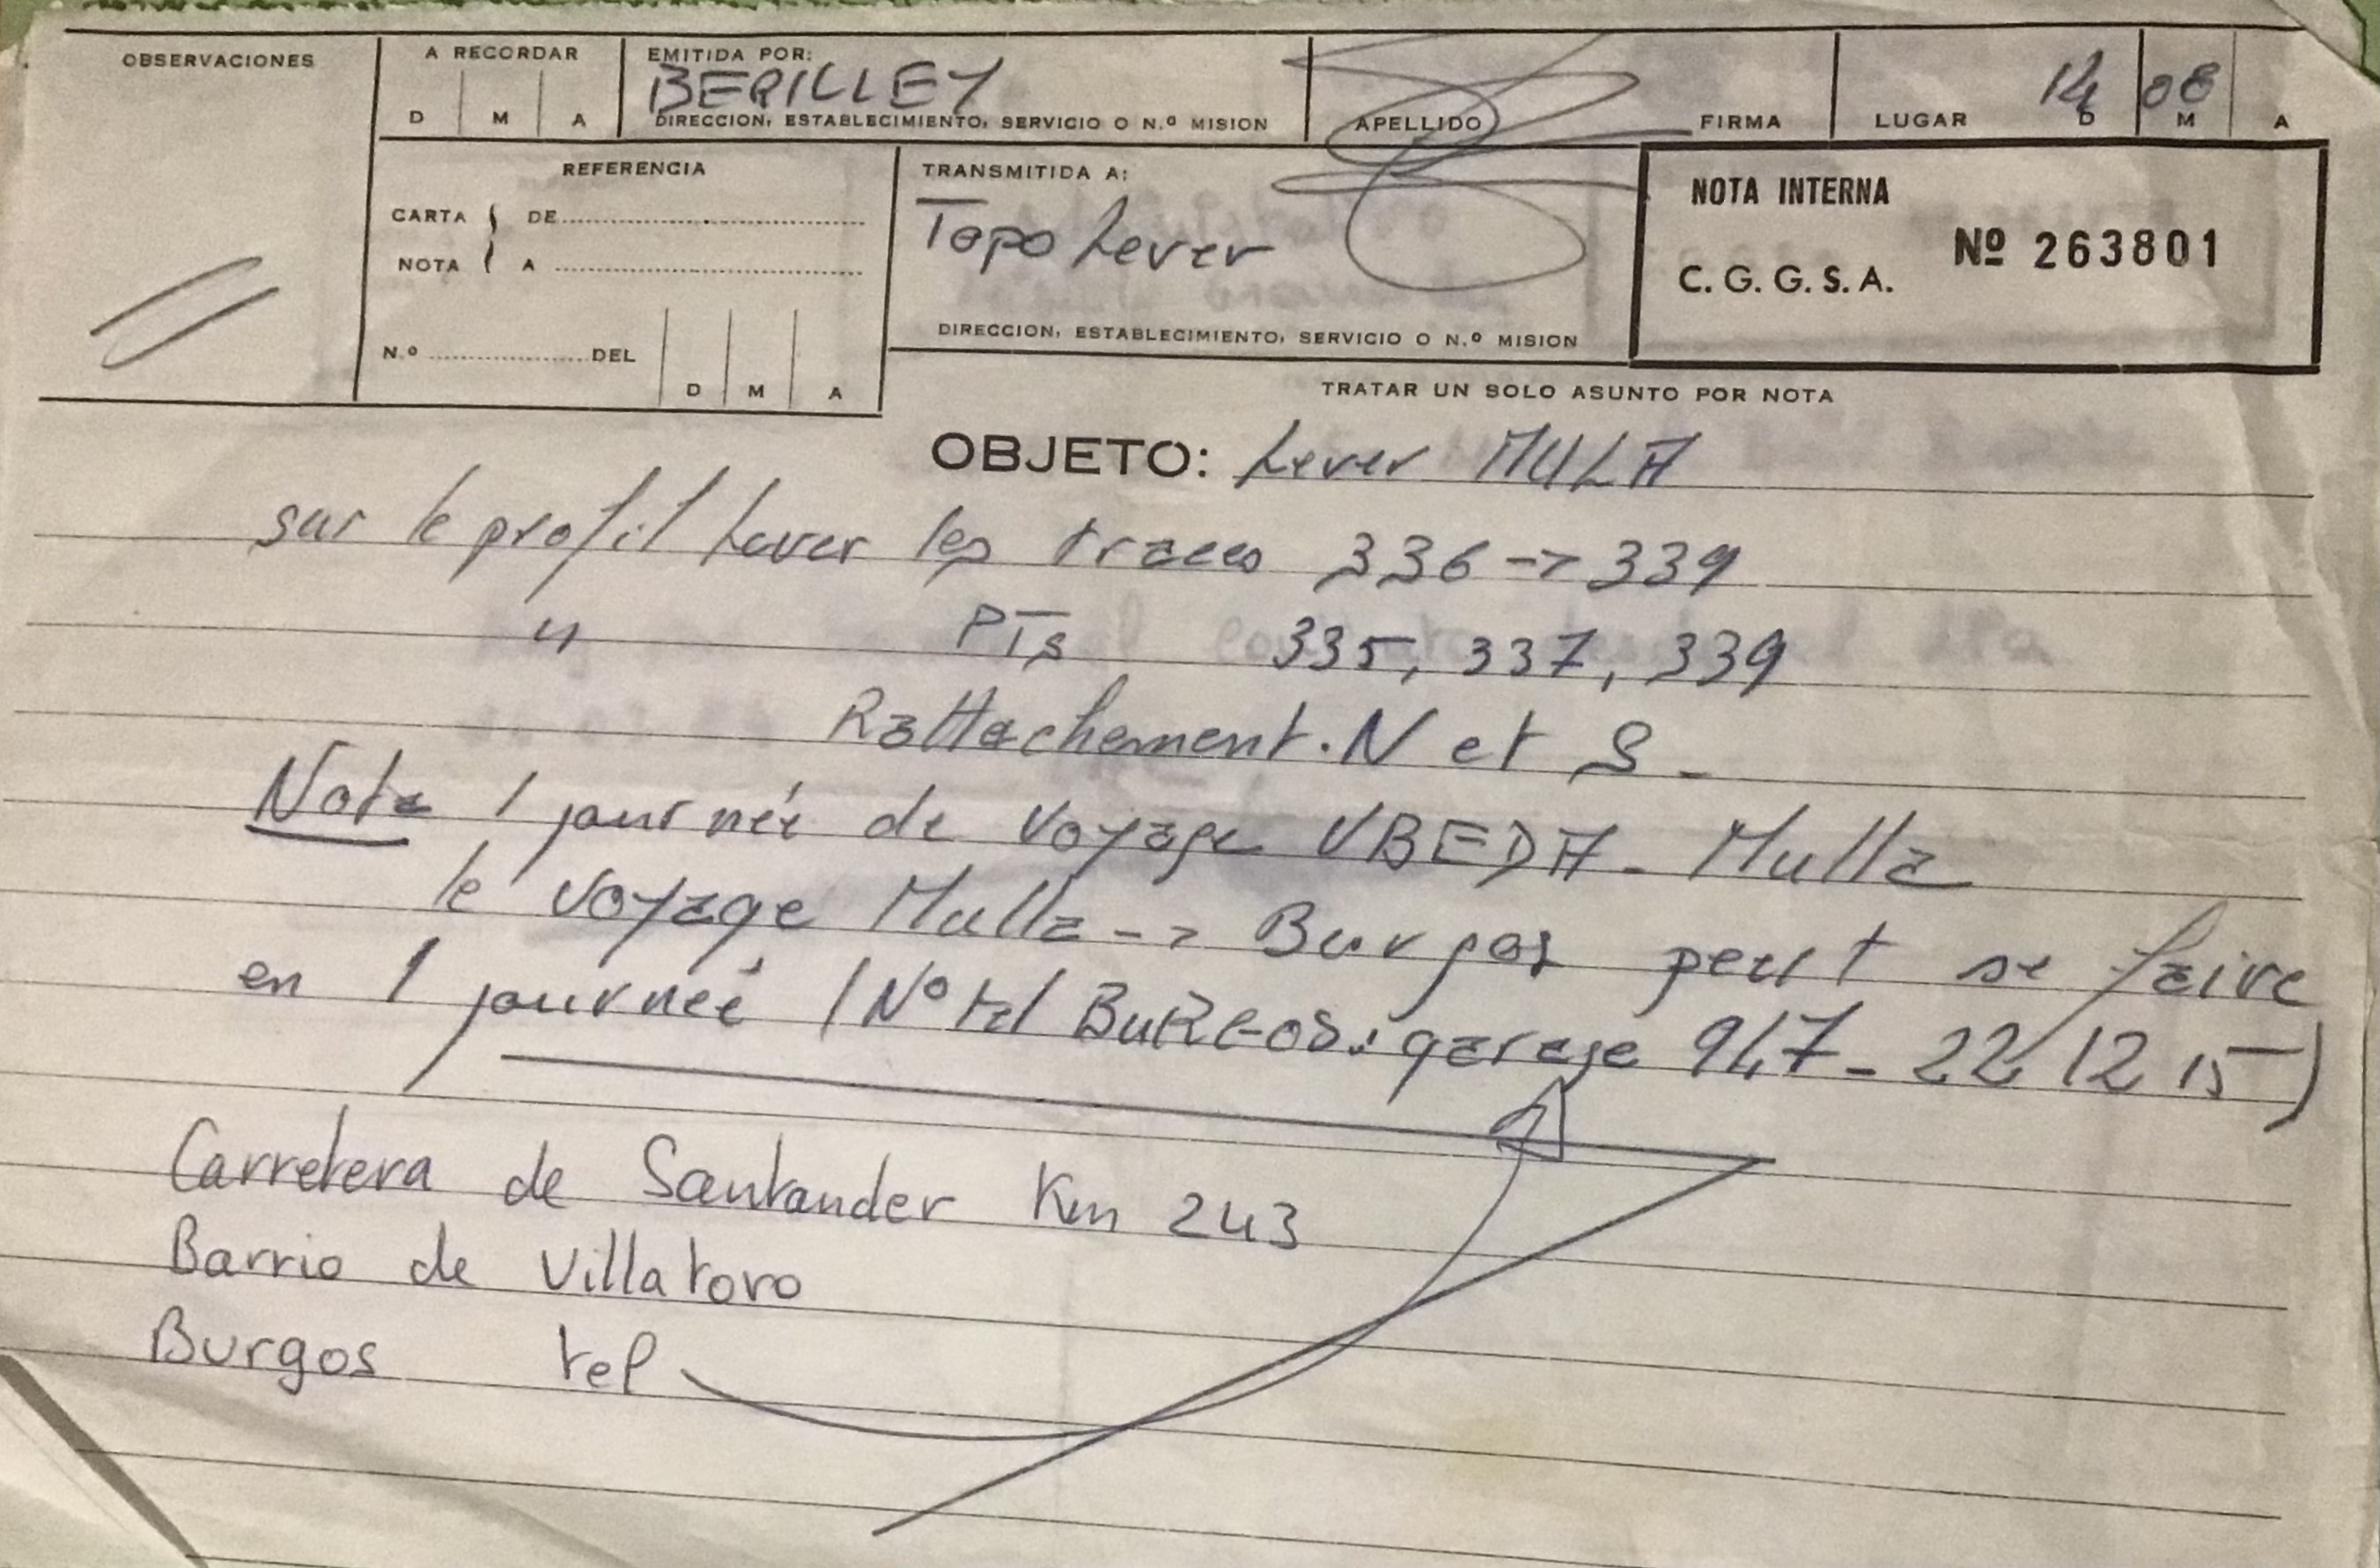 OBSERVACIONES
A RECORDAR
D M A
EMITIDA POR:
BERILLEY
DIRECCION, ESTABLECIMIENTO, SERVICIO O N.º MISION
APELLIDO
FIRMA
LUGAR
14 08
D M A
REFERENCIA
CARTA DE
NOTA A
N.º DEL
D M A
TRANSMITIDA A:
Topo Lever
DIRECCION, ESTABLECIMIENTO, SERVICIO O N.º MISION
NOTA INTERNA
C. G. G. S. A.
Nº 263801
TRATAR UN SOLO ASUNTO POR NOTA
OBJETO: Lever MULA
sur le profil Lever les traces 336 -> 339
" PTs 335, 337, 339
Rattachement. N et S -
Nota 1 journée de voyage UBEDA - Mulla
le voyage Mulla -> Burgos peut se faire
en 1 journée (N° tel BURGOS: garage 947 - 22 12 15)
Carretera de Santander Km 243
Barrio de Villatoro
Burgos tel